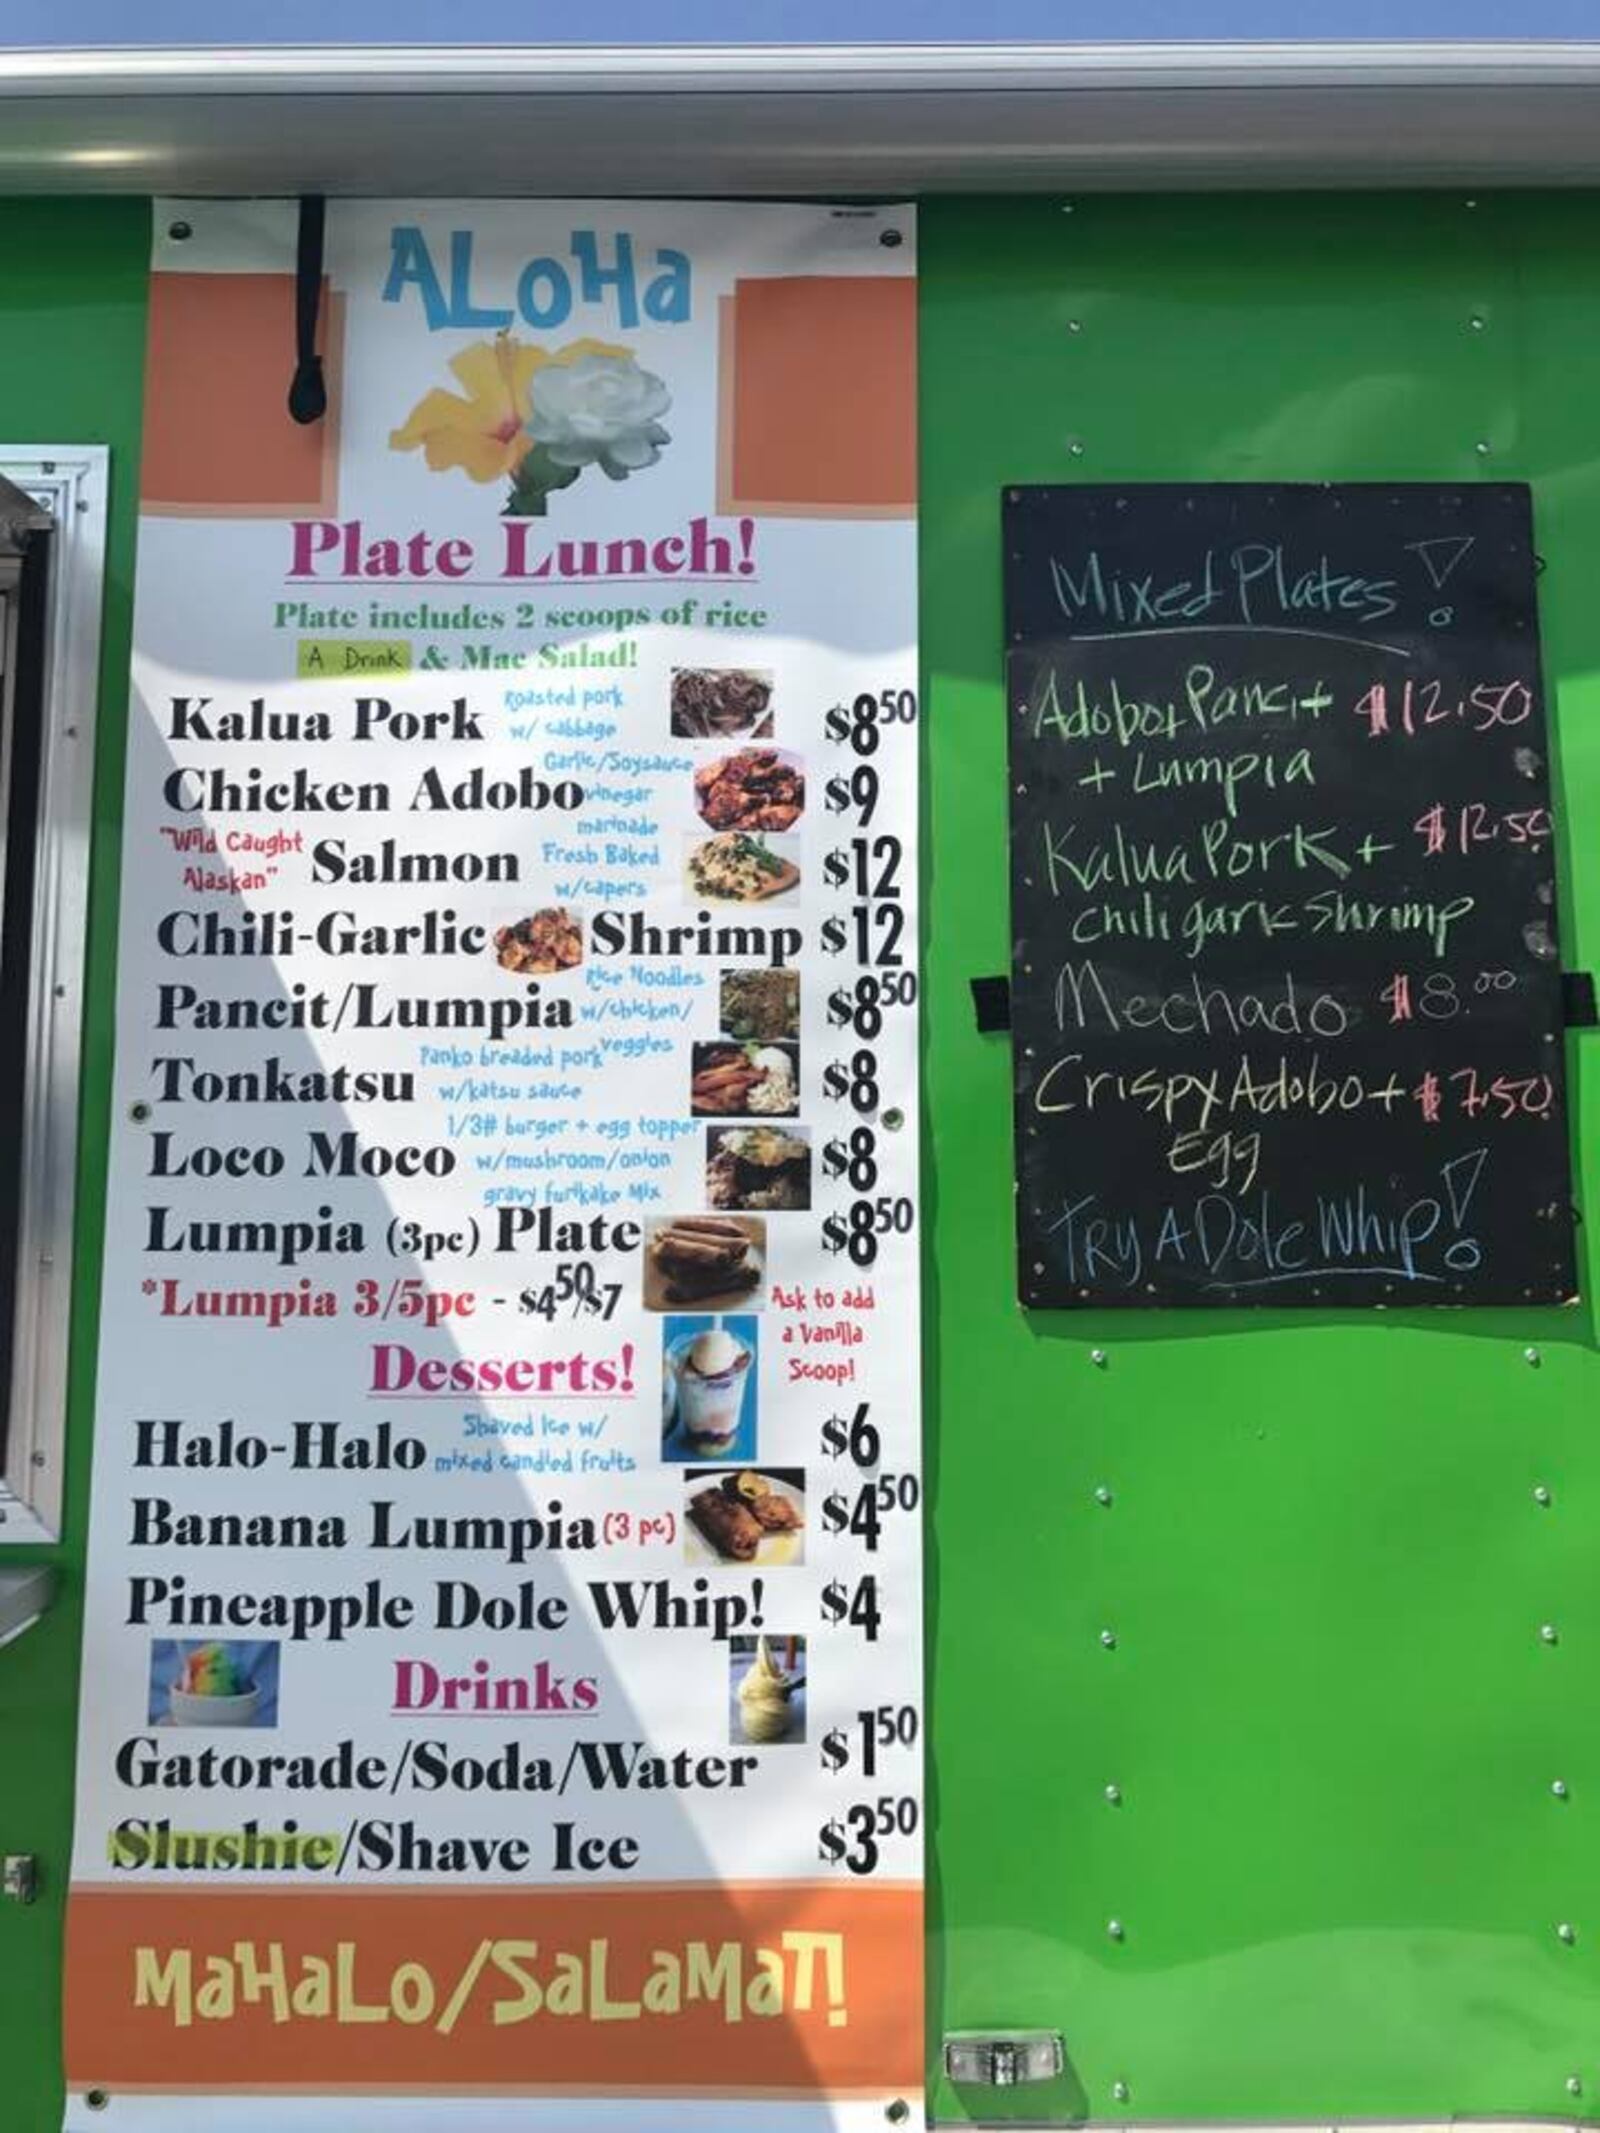 ALoHa
Plate Lunch!
Plate includes 2 scoops of rice
A Drink & Mac Salad!
Kalua Pork Roasted pork w/ cabbage $8.50
Chicken Adobo Garlic/Soysauce vinegar marinade $9
"Wild Caught Alaskan" Salmon Fresh Baked w/capers $12
Chili-Garlic Shrimp $12
Pancit/Lumpia Rice Noodles w/chicken/veggies $8.50
Tonkatsu Panko breaded pork w/katsu sauce $8
Loco Moco 1/3# burger + egg topper w/mushroom/onion gravy furikake Mix $8
Lumpia (3pc) Plate $8.50
*Lumpia 3/5pc - $4.50/$7
Ask to add
a Vanilla
Scoop!
Desserts!
Halo-Halo Shaved Ice w/ mixed candied fruits $6
Banana Lumpia (3 pc) $4.50
Pineapple Dole Whip! $4
Drinks
Gatorade/Soda/Water $1.50
Slushie/Shave Ice $3.50
MaHaLo/SaLaMaT!
Mixed Plates!
Adobo+Pancit $12.50
+ Lumpia
Kalua Pork + $12.50
chili garlic shrimp
Mechado $8.00
Crispy Adobo + $7.50
Egg
Try A Dole Whip!